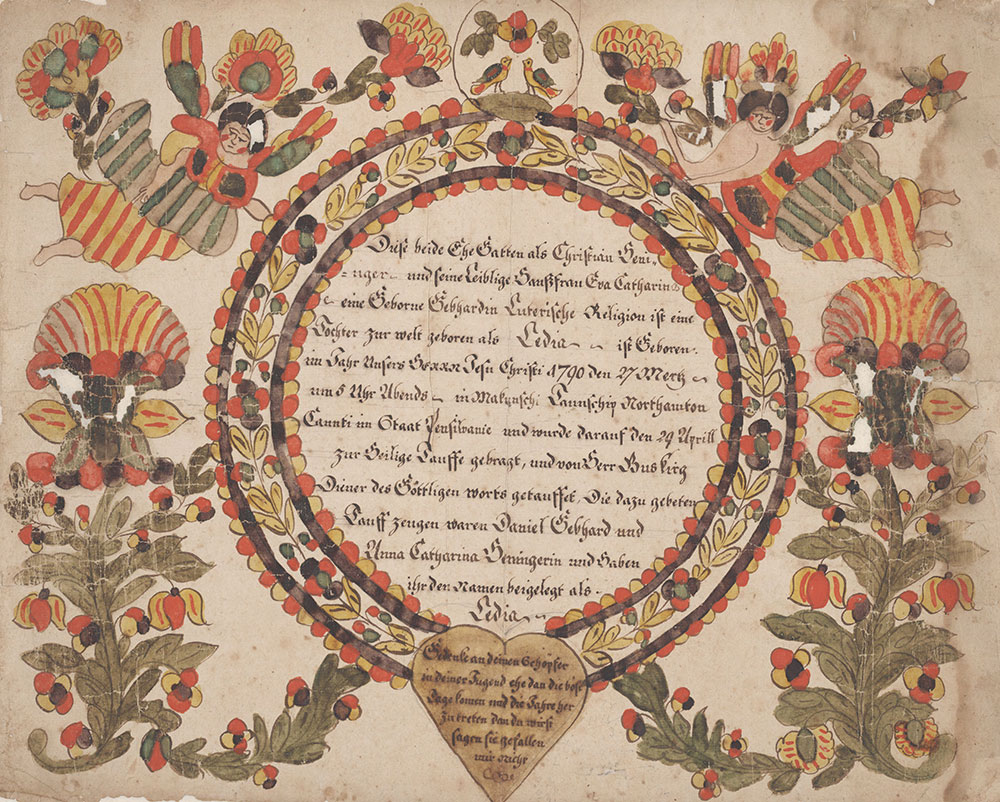 Diese beide Ehe Gatten als Christian Heni-
-nger und seine Leiblige Haußfrau Eva Catharin
eine Geborne Gebhardin Luterische Religion ist eine
Tochter zur welt geboren als Ledia ist Geboren
im Jahr Unsers Herrn Jesu Christi 1790 den 27 Mertz
um 5 Uhr Abends in Makunschi Taunschip Northamton
Caunti im Staat Pensilvanie und wurde darauf den 24 Aprill
zur Heilige Tauffe gebragt, und von Herr Buskirg
Diener des Göttligen worts getauffet. Die dazu gebeten
Tauff zeugen waren Daniel Gebhard und
Anna Catharina Heningerin und Haben
ihr den Namen beigelegt als
Ledia
Gedenke an deinen Schöpfer
in deiner Jugend ehe dan die böse
Tage komen und die Jahre her
zu treten dan du wirst
sagen sie gefallen
mir nicht